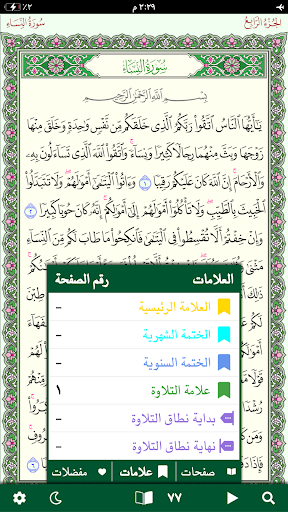 ٢:٢٩ م
٪٢
الجزء الرابع
سورة النساء
سُورَةُ النِّسَاءِ
بِسْمِ اللَّهِ الرَّحْمَٰنِ الرَّحِيمِ
يَٰٓأَيُّهَا ٱلنَّاسُ ٱتَّقُوا۟ رَبَّكُمُ ٱلَّذِى خَلَقَكُم مِّن نَّفْسٍ وَٰحِدَةٍ وَخَلَقَ مِنْهَا
زَوْجَهَا وَبَثَّ مِنْهُمَا رِجَالًا كَثِيرًا وَنِسَآءً ۚ وَٱتَّقُوا۟ ٱللَّهَ ٱلَّذِى تَسَآءَلُونَ بِهِۦ
وَٱلْأَرْحَامَ ۚ إِنَّ ٱللَّهَ كَانَ عَلَيْكُمْ رَقِيبًا ١ وَءَاتُوا۟ ٱلْيَتَٰمَىٰٓ أَمْوَٰلَهُمْ ۖ وَلَا تَتَبَدَّلُوا۟
ٱلْخَبِيثَ بِٱلطَّيِّبِ ۖ وَلَا تَأْكُلُوٓا۟ أَمْوَٰلَهُمْ إِلَىٰٓ أَمْوَٰلِكُمْ ۚ إِنَّهُۥ كَانَ حُوبًا كَبِيرًا ٢
وَإِنْ خِفْتُمْ أَلَّا تُقْسِطُوا۟ فِى ٱلْيَتَٰمَىٰ فَٱنكِحُوا۟ مَا طَابَ لَكُم مِّنَ ٱلنِّسَآءِ
العلامات رقم الصفحة
العلامة الرئيسية –
الختمة الشهرية –
الختمة السنوية –
علامة التلاوة ١
بداية نطاق التلاوة –
نهاية نطاق التلاوة –
صفحات علامات مفضلات
٧٧